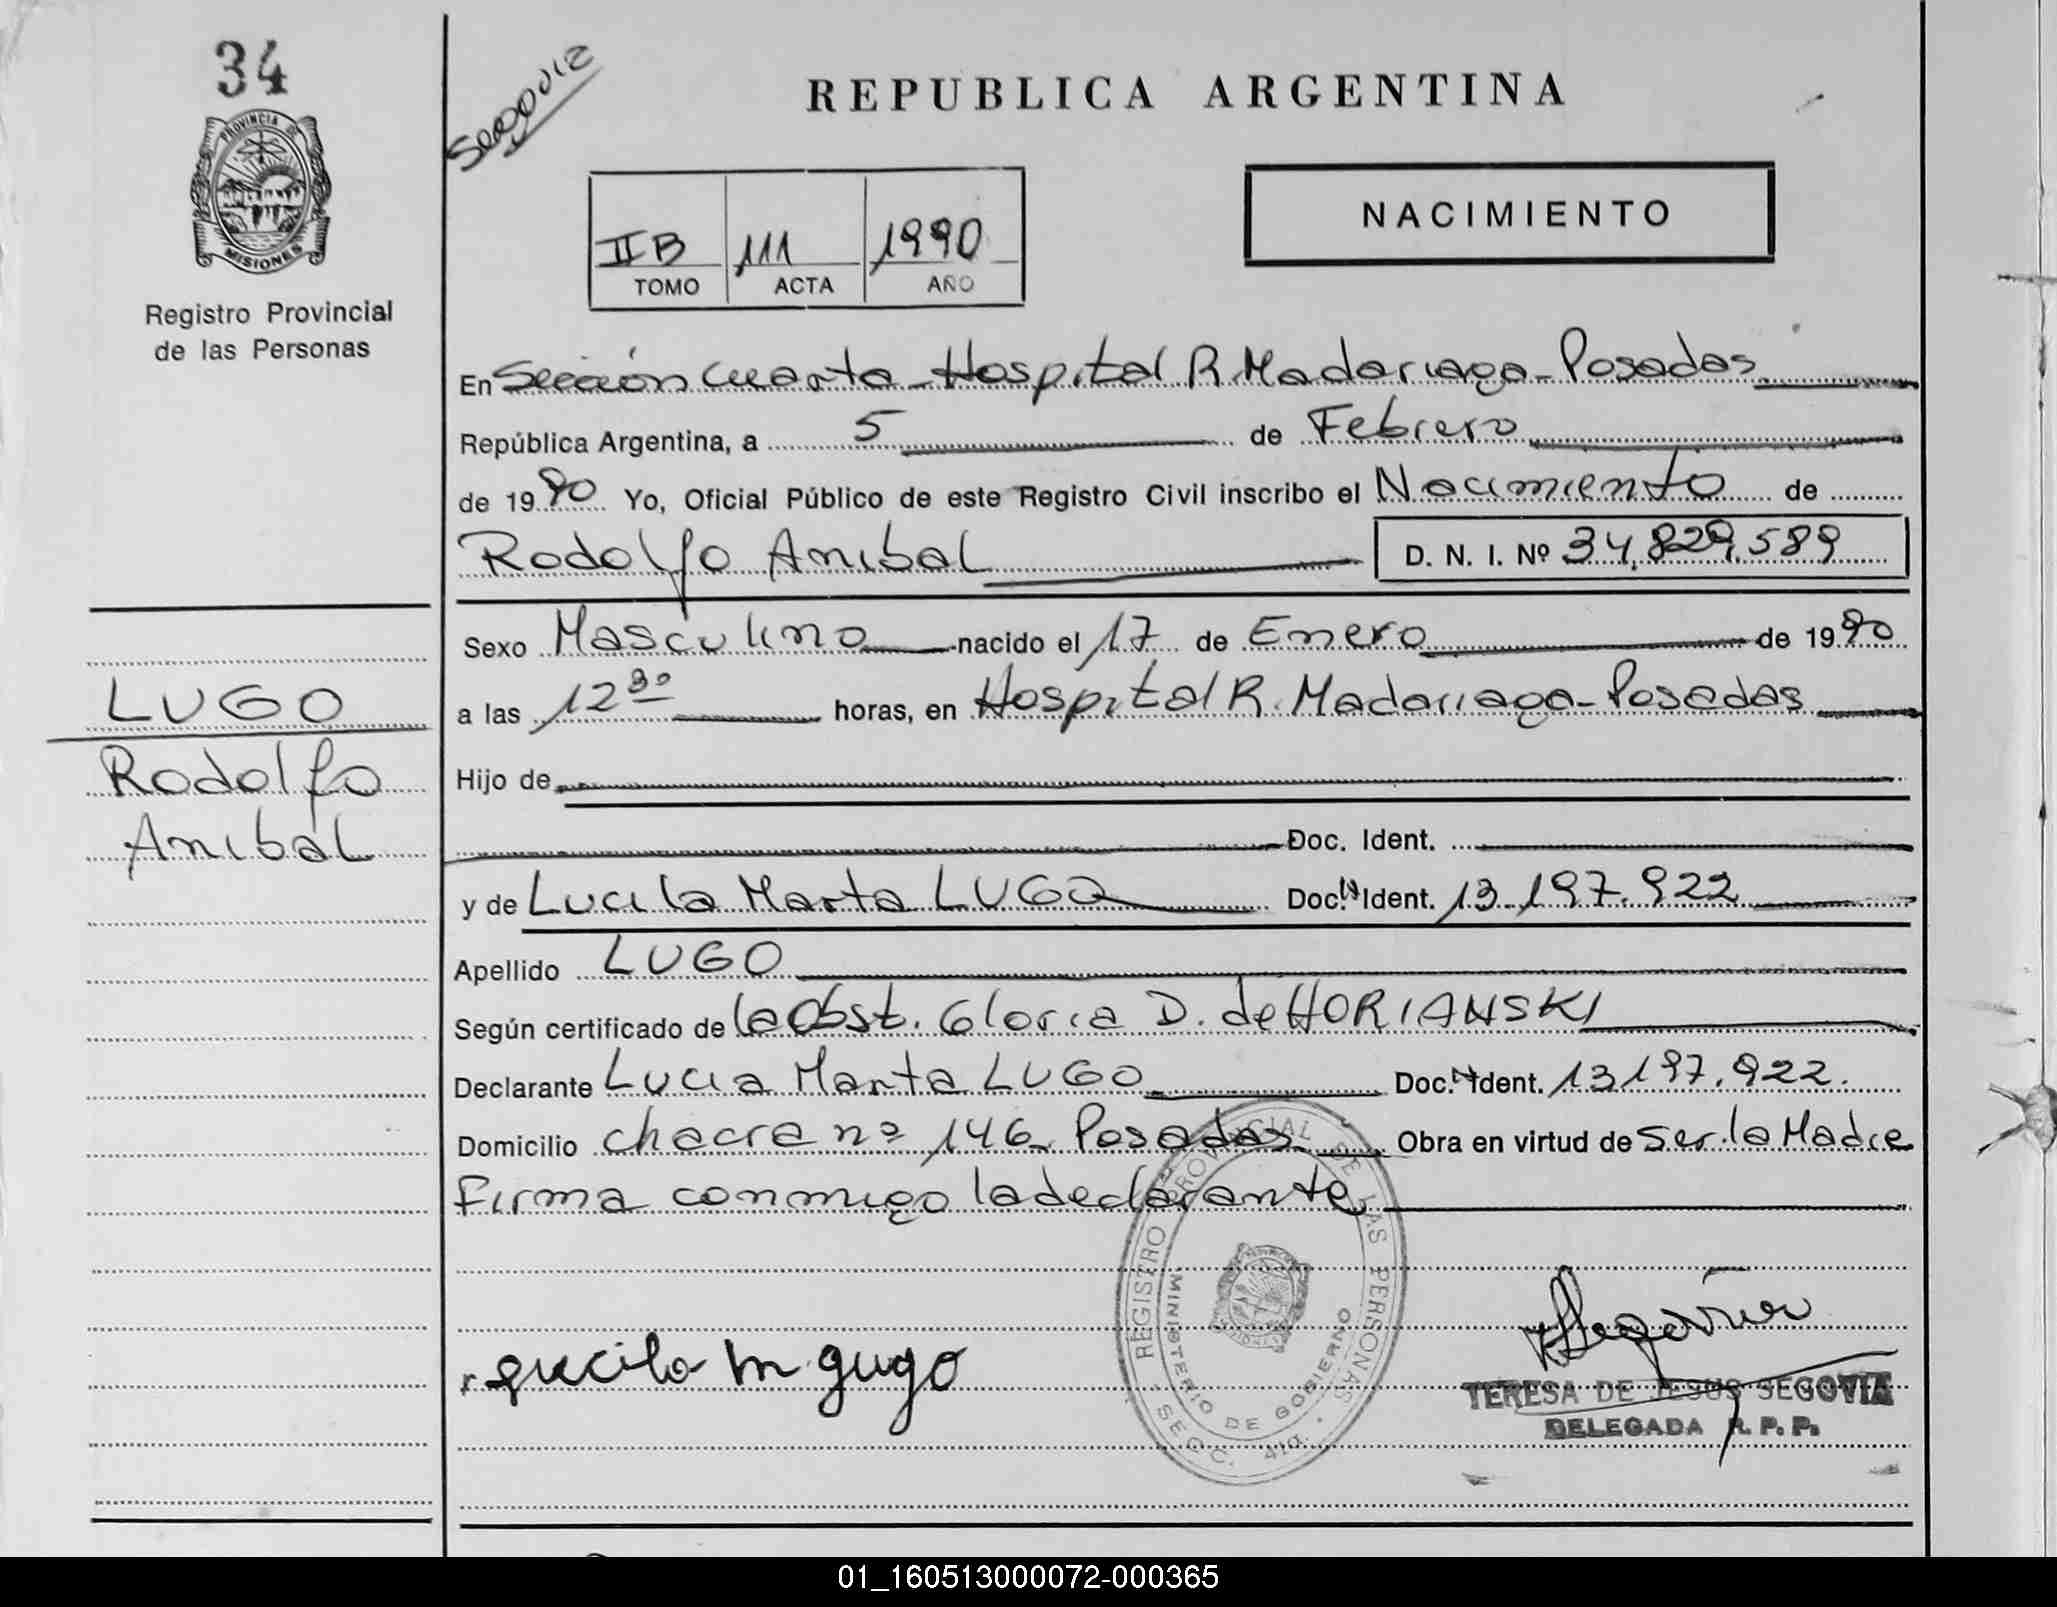 34
PROVINCIA DE
MISIONES
Registro Provincial
de las Personas
LUGO
Rodolfo
Anibal
REPUBLICA ARGENTINA
NACIMIENTO
II B 111 1990
TOMO ACTA AÑO
En Sección Cuarta - Hospital R. Madariaga - Posadas
República Argentina, a 5 de Febrero
de 1990 Yo, Oficial Público de este Registro Civil inscribo el Nacimiento de
Rodolfo Anibal D. N. I. Nº 34.829.589
Sexo Masculino nacido el 17 de Enero de 1990
a las 12 30 horas, en Hospital R. Madariaga - Posadas
Hijo de
Doc. Ident.
y de Lucila Marta LUGO Doc. N Ident. 13.197.922
Apellido LUGO
Según certificado de la Obst. Gloria D. de HORIANSKI
Declarante Lucia Marta LUGO Doc. N Ident. 13197.922.
Domicilio chacra nº 146 Posadas Obra en virtud de Ser la Madre
Firma conmigo la declarante
REGISTRO PROVINCIAL DE LAS PERSONAS
MINISTERIO DE GOBIERNO
SECC. 4ta.
Lucila M. Lugo
TERESA DE JESUS SEGOVIA
DELEGADA R. P. P.
01_160513000072-000365